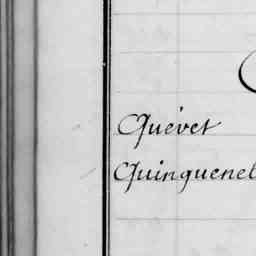 Quévet
Quinquenel